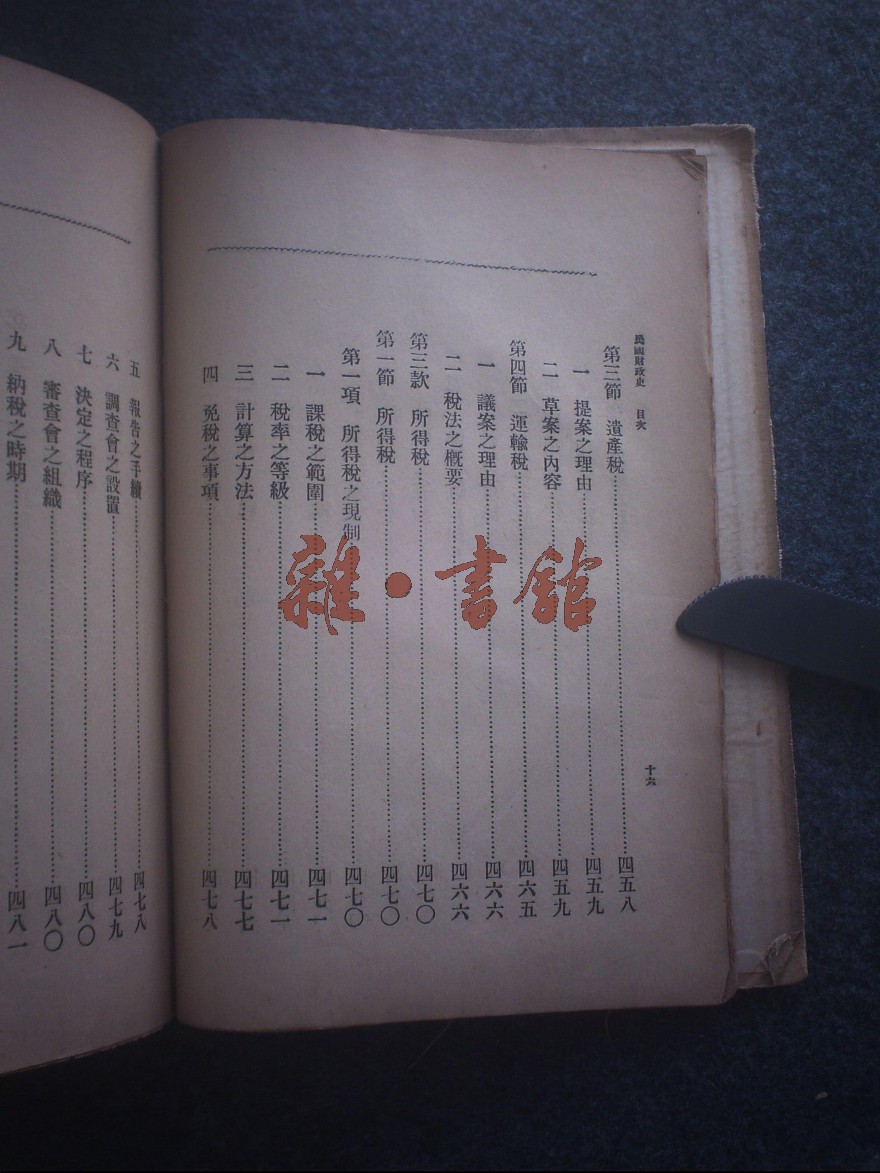 民國財政史 目次
十六
第三節 遺產稅 四五八
一 提案之理由 四五九
二 草案之內容 四五九
第四節 運輸稅 四六五
一 議案之理由 四六六
二 稅法之概要 四六六
第三款 所得稅 四七〇
第一節 所得稅 四七〇
第一項 所得稅之現制 四七〇
一 課稅之範圍 四七一
二 稅率之等級 四七一
三 計算之方法 四七七
四 免稅之事項 四七八
五 報告之手續 四七八
六 調查會之設置 四七九
七 決定之程序 四八〇
八 審查會之組織 四八〇
九 納稅之時期 四八一
雜·書館